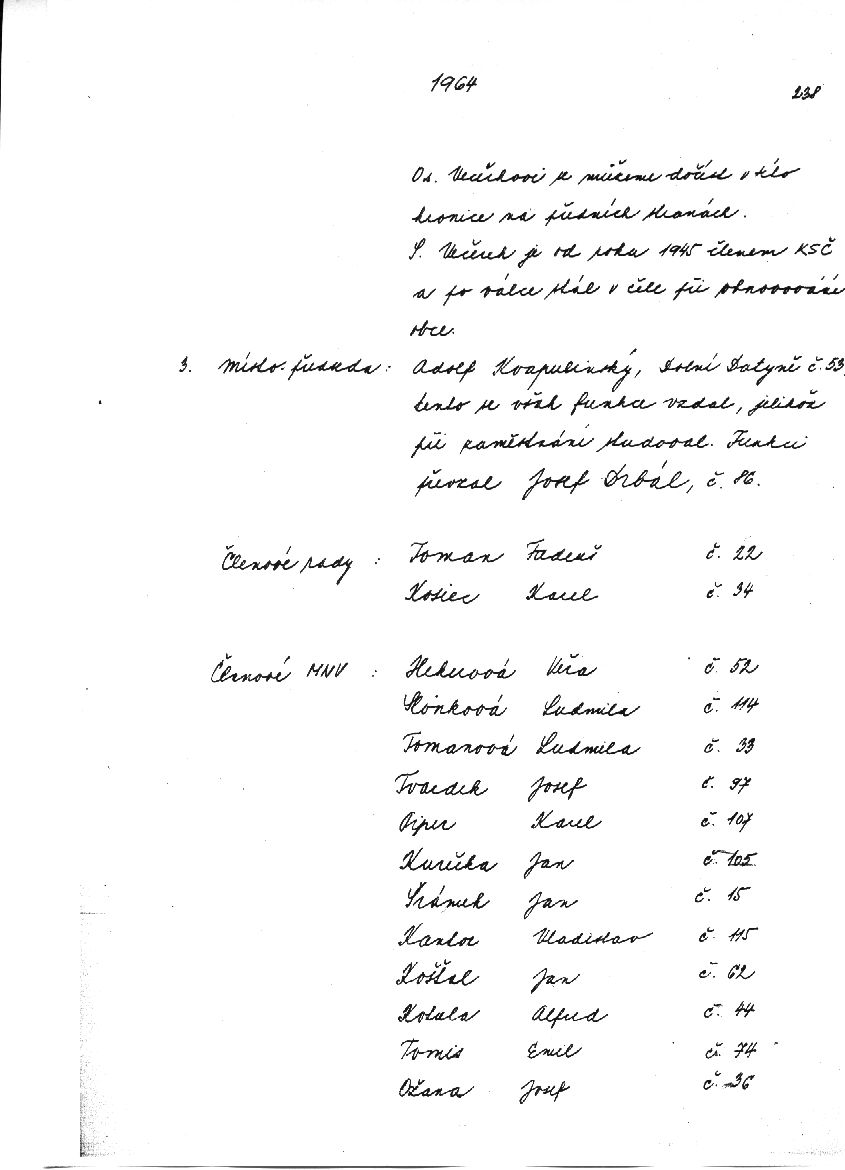 1964
238
O s. Večerkovi se můžeme dočíst v této
kronice na předních stranách.
S. Večerek je od roku 1945 členem KSČ
a po válce stál v čele při obnovování
obce.
3. Místo-předseda: Adolf Kvapulinský, Dolní Datyně č. 53,
tento se však funkce vzdal, jelikož
při zaměstnání studoval. Funkci
převzal Josef Drbál, č. 86.
Členové rady: Toman Tadeuš č. 22
Kosiec Karel č. 34
Členové MNV: Hekerová Věra č. 52
Slónková Ludmila č. 114
Tomanová Ludmila č. 33
Tvardek Josef č. 97
Piper Karel č. 107
Kurečka Jan č. 105
Šrámek Jan č. 15
Kantor Vladislav č. 115
Košťal Jan č. 62
Kotala Alfred č. 44
Tomis Emil č. 74
Ožana Josef č. 36